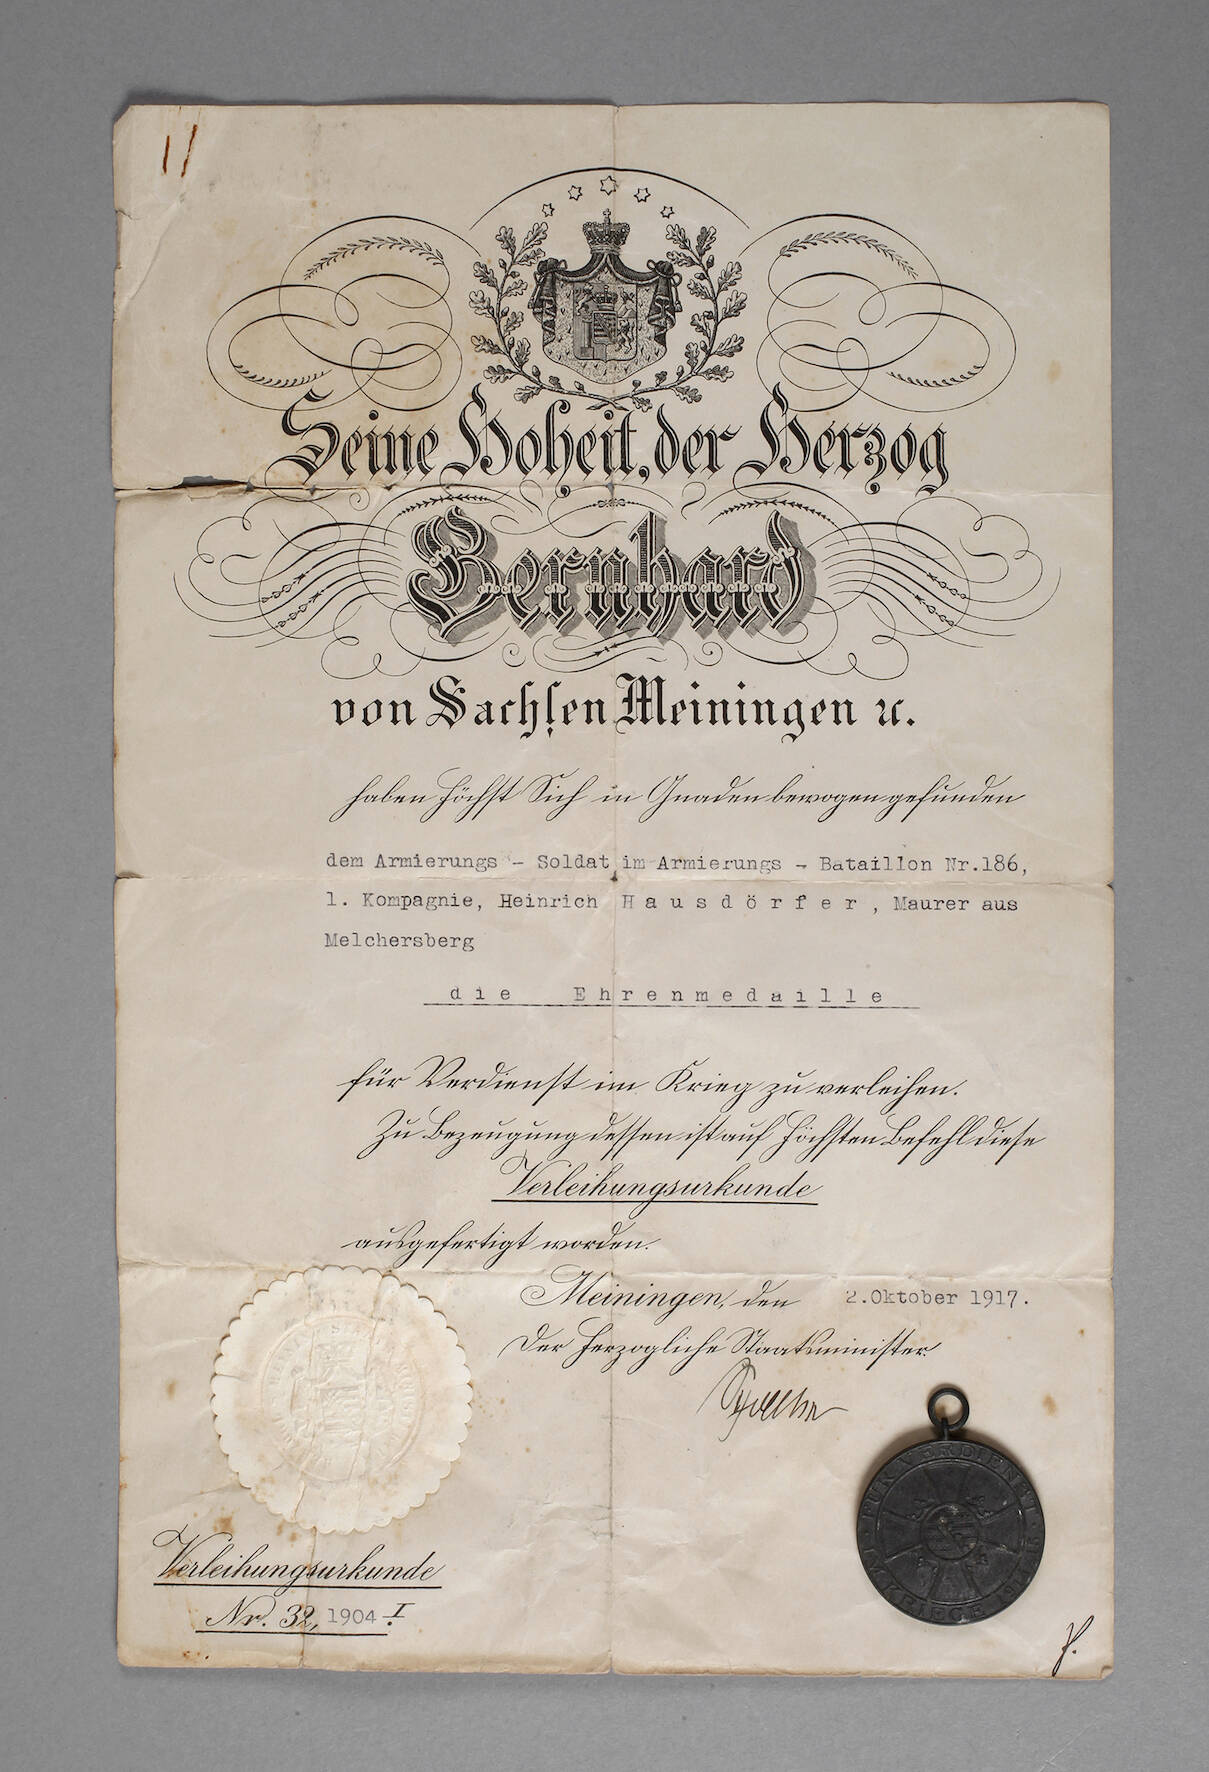 Seine Hoheit, der Herzog
Bernhard
von Sachsen Meiningen ꝛc.
haben Höchst Sich in Gnaden bewogen gefunden
dem Armierungs - Soldat im Armierungs - Bataillon Nr.186,
1. Kompagnie, Heinrich Hausdörfer, Maurer aus
Melchersberg
die Ehrenmedaille
für Verdienst im Krieg zu verleihen.
Zu Bezeugung dessen ist auf Höchsten Befehl diese
Verleihungsurkunde
ausgefertigt worden.
Meiningen, den 2.Oktober 1917.
Der Herzogliche Staatsminister.
Verleihungsurkunde
Nr. 32, 1904 I.
FÜR VERDIENST
IM KRIEGE